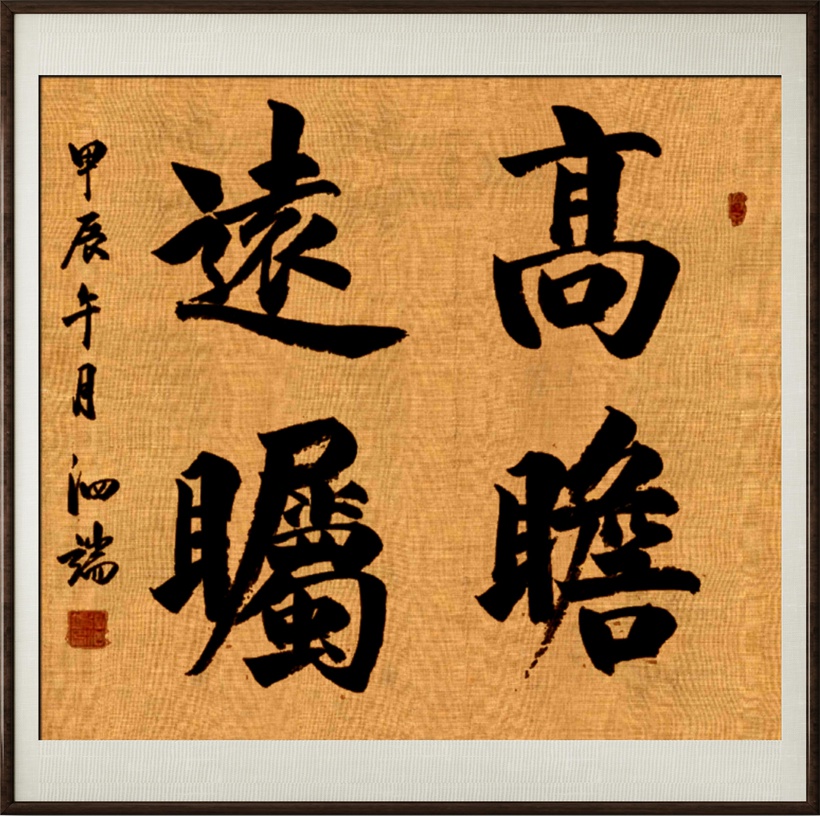 高瞻
遠矚
甲辰午月泗端